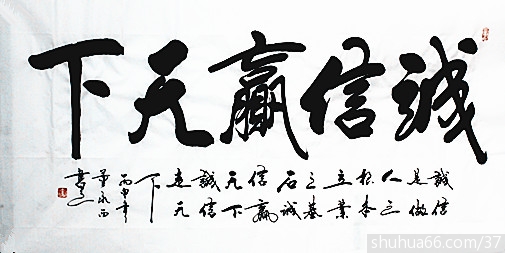 誠信赢天下
誠信
是做
人之
根本
立業
之基
石誠
信赢
天下
誠信
走天
下
丙申年
書
shuhua66.com/37